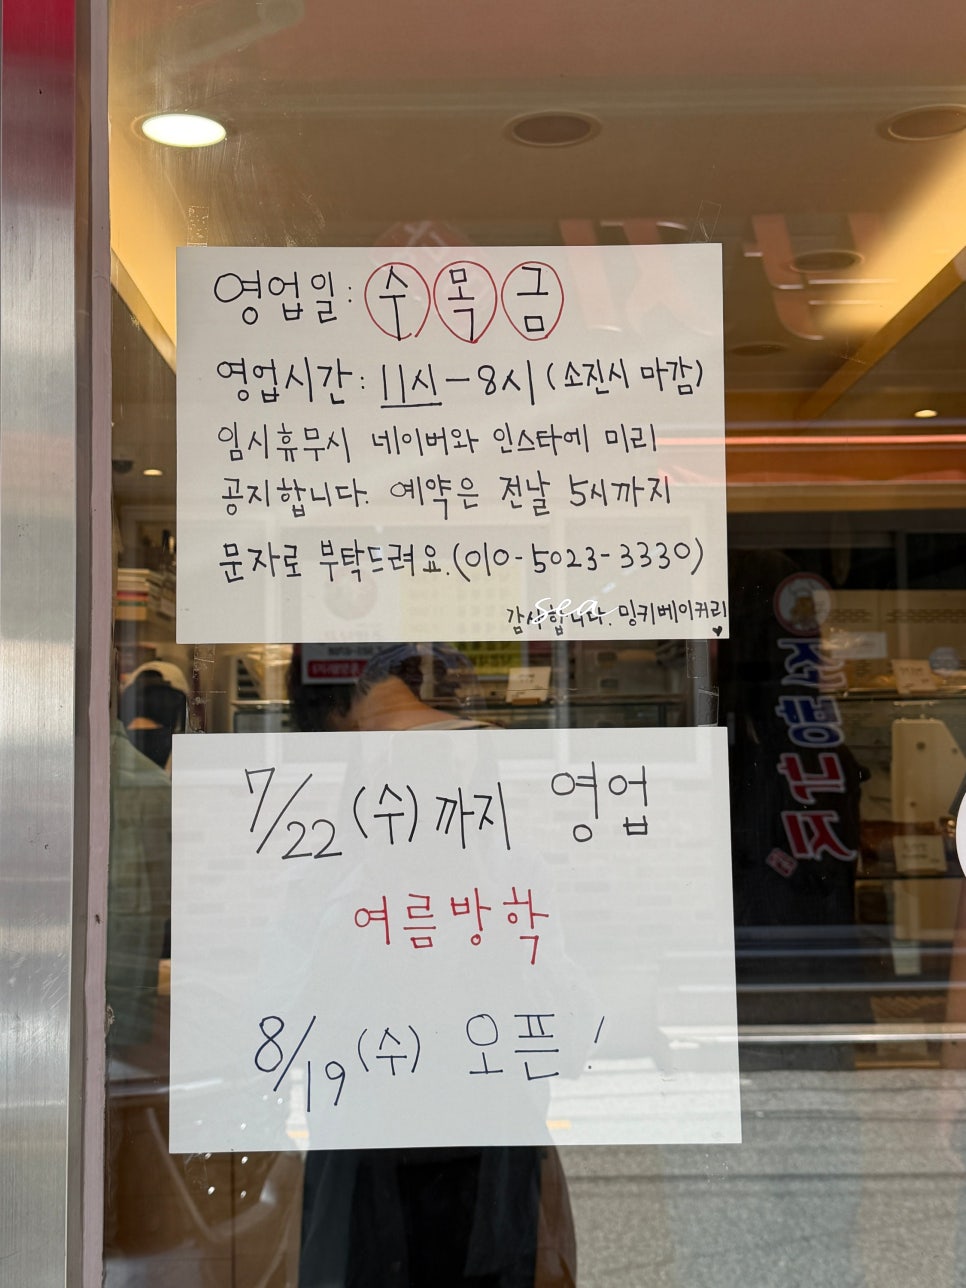 영업일: 수 목 금
영업시간: 11시-8시 (소진시 마감)
임시휴무시 네이버와 인스타에 미리
공지합니다. 예약은 전날 5시까지
문자로 부탁드려요.(010-5023-3330)
감사합니다. 밍키베이커리♥
7/22 (수)까지 영업
여름방학
8/19 (수) 오픈!